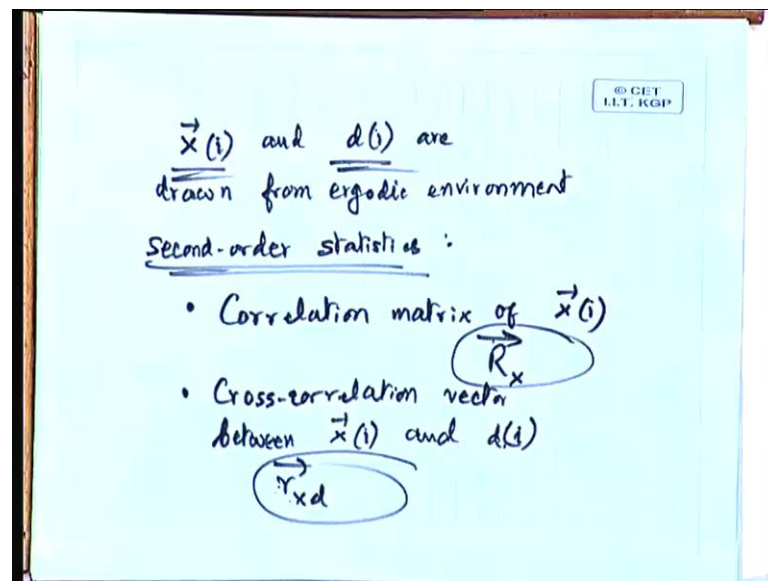 © CET
I.I.T. KGP
x⃗(i) and d(i) are
drawn from ergodic environment
Second-order statistics :
• Correlation matrix of x⃗(i)
R⃗x
• Cross-correlation vector
between x⃗(i) and d(i)
r⃗xd